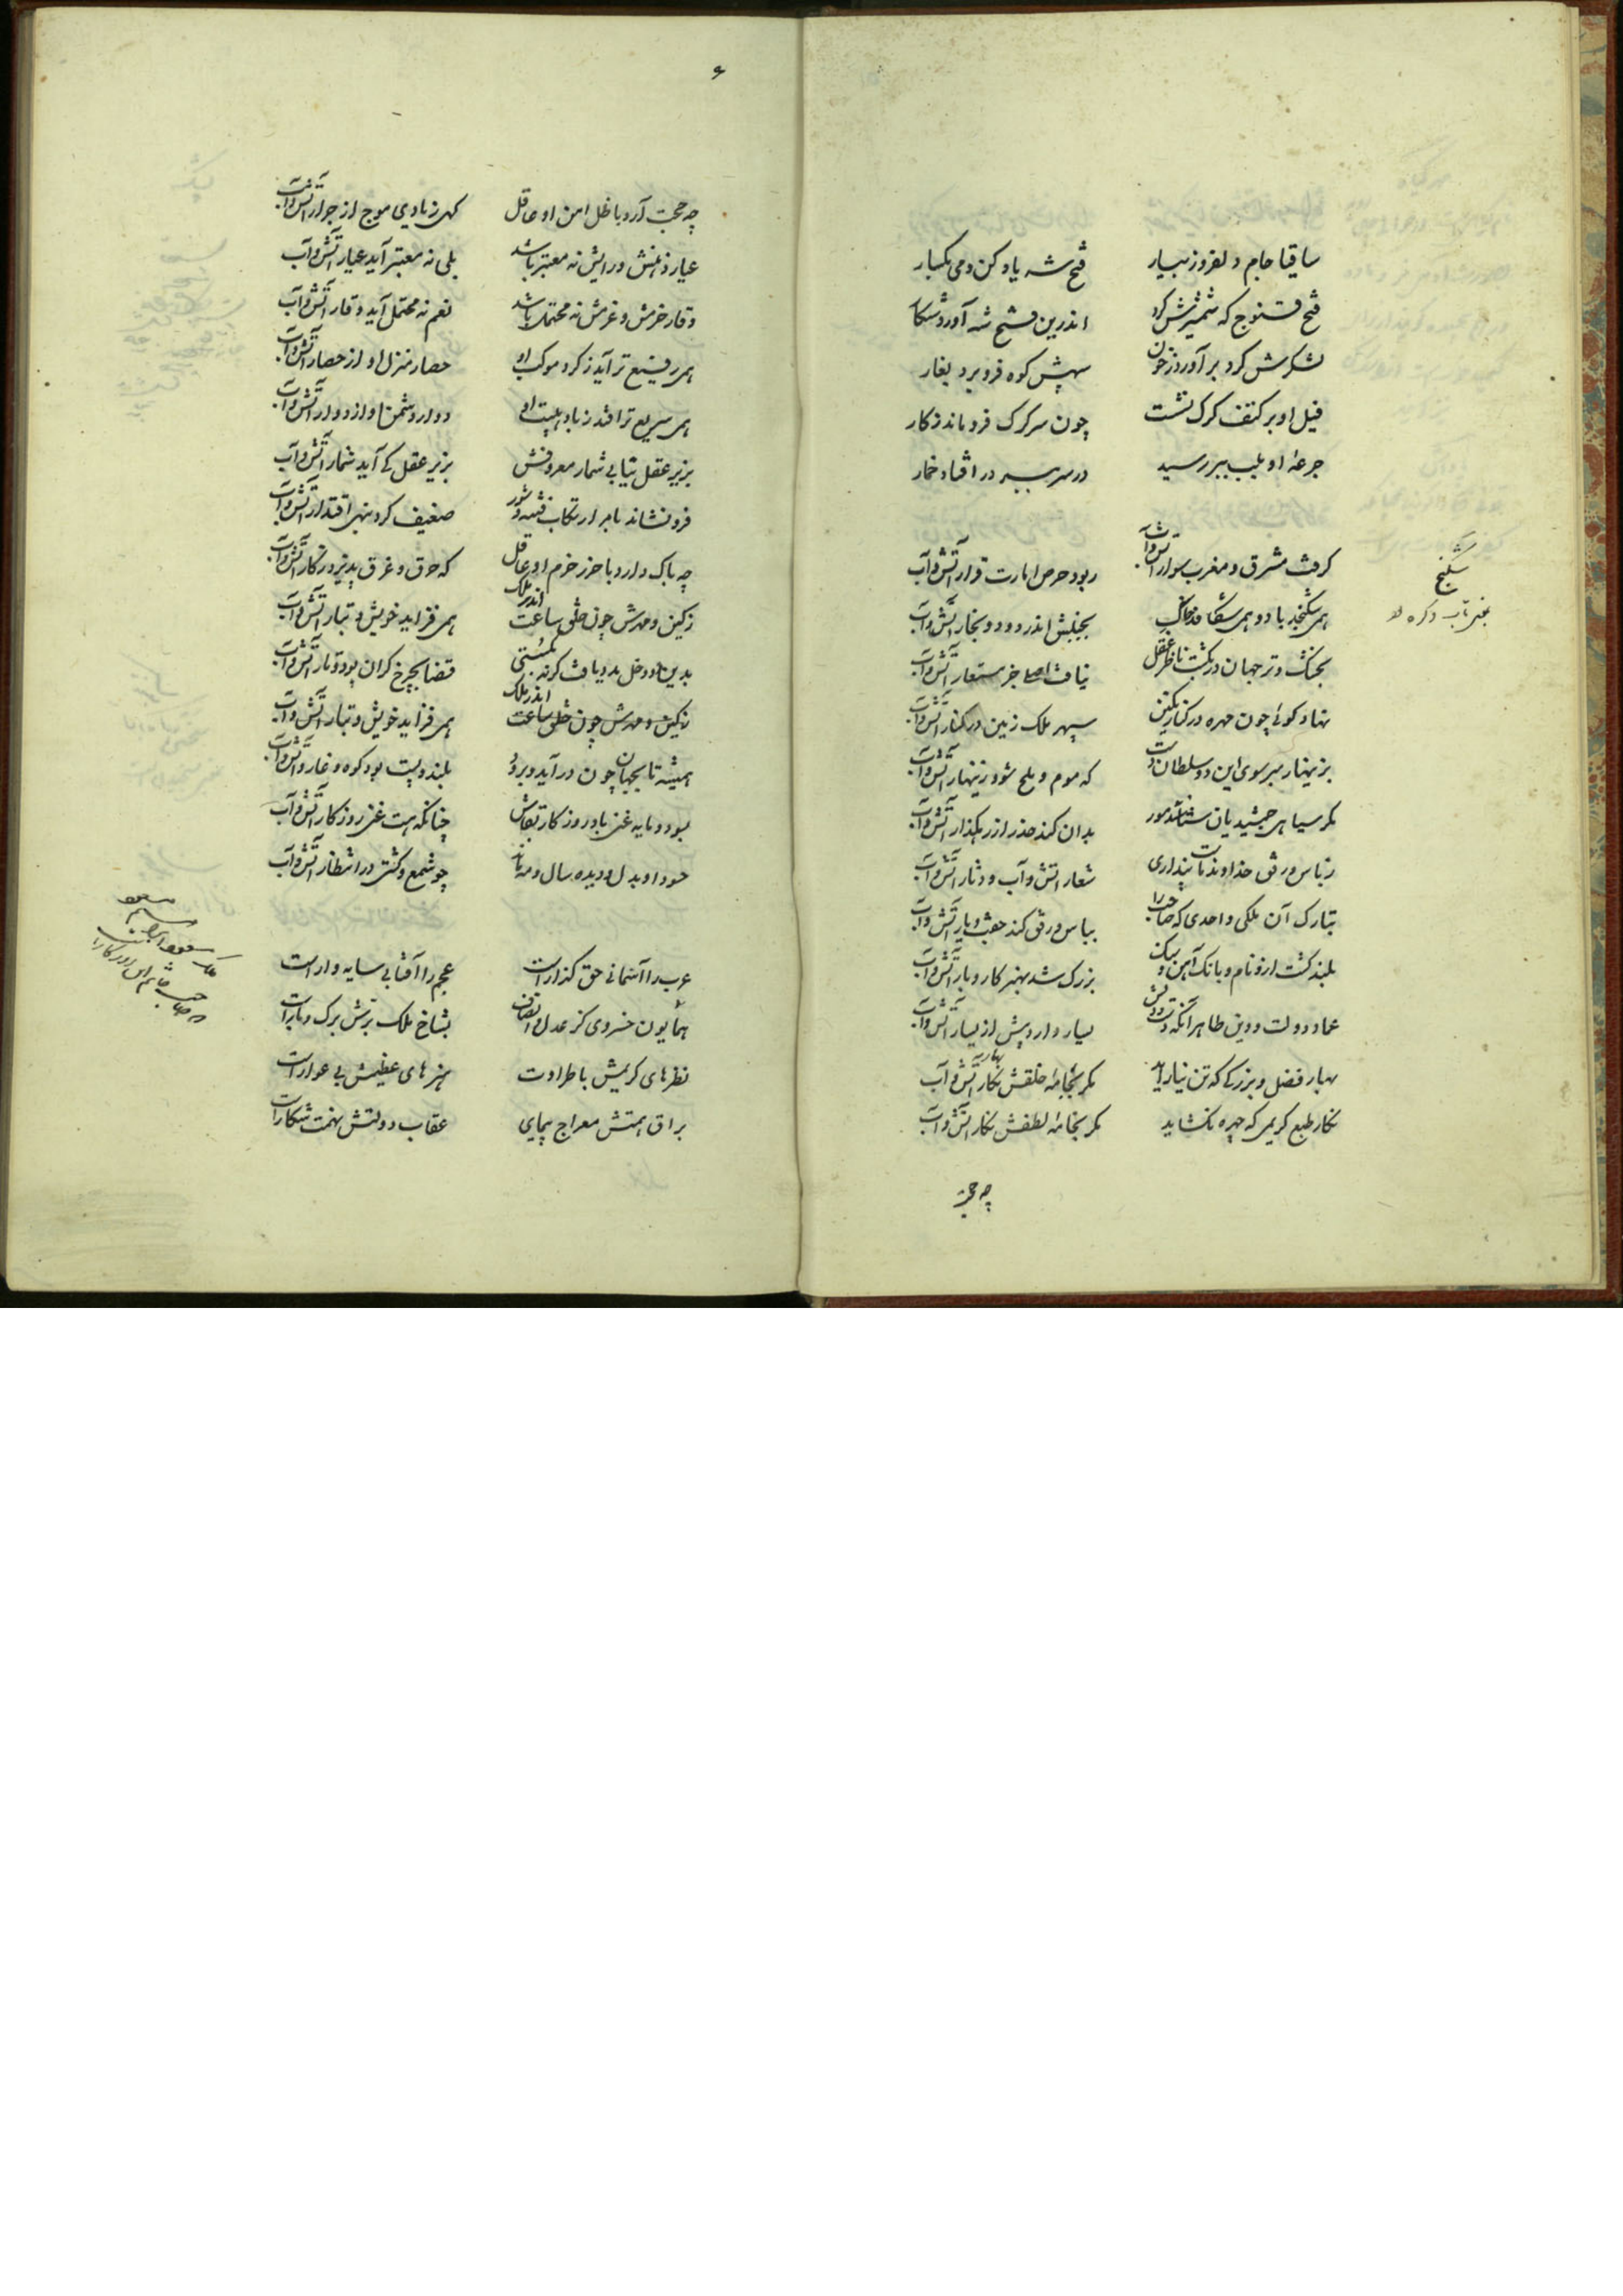 ساقیا جام دلفروز بیار    فتح شه یاد کن و می بگسار
فتح قنوج که شمشیرش کرد    اندرین فتح شه آورد شکار
لشکرش گرد برآورد ز خون    سپهش کوه فرو برد بغار
فیل او بر کتف کرک نشست    چون سر کرک فرو ماند ز کار
جرعهٔ او بلب ببر رسید    در سر ببر در افتاد خمار
گرفت مشرق و مغرب سوار آتش و آب    ربود حرص امارت قرار آتش و آب
همی شکنجد باد و همی شکافد خاک    بجنبش اندر دود و بخار آتش و آب
شکنج
بجنگ و ترجمان در نگشت ناظر عقل    نیافت اصل جز مستعار آتش و آب
نهاد گوئی چون مهره در کنار نگین    سپهر ملک زمین در کنار آتش و آب
بزینهار مبر سوی این دو سلطان دست    که موم و ملح شود زینهار آتش و آب
مگر سپاهی جمشیدیان شناسد مور    بدان کند حذر از رهگذار آتش و آب
ز باس و رفق خداوند ماست پنداری    شعار آتش و آب و دثار آتش و آب
تبارک آن ملکی واحدی که صاحب را    بباس و رفق کند جفت و یار آتش و آب
بلند گشت ازو نام و بانگ آهن و سنگ    بزرگ شد بهنر کار و بار آتش و آب
عماد دولت و دین طاهر آنکه قدرت و دستش    یسار دارد بیش از یسار آتش و آب
بهار فضل و بزرگی که تن نیاراید    مگر بخامهٔ خلقش نگار آتش و آب
بهار
نگار طبع کریمی که چهره نگشاید    مگر بخامهٔ لطفش نگار آتش و آب
چه حجت
۶
چه حجت آرد با ظل امن او عاقل    گهی ز بادی موج از جوار آتش و آب
عیار دانش و رایش نه معتبر باشد    بلی نه معتبر آید عیار آتش و آب
وقار حزمش و عزمش نه محتمل باشد    نعم نه محتمل آید وقار آتش و آب
همی رفیع تر آید ز گرد موکب او    حصار منزل او از حصار آتش و آب
همی سریع تر افتد ز باد هیبت او    دوار دشمن او از دوار آتش و آب
بزیر عقل نیابی شمار معروفش    بزیر عقل کی آید شمار آتش و آب
فرو نشاند بامر ارتکاب فتنه و شور    ضعیف کرد بنهی اقتدار آتش و آب
چه باک دارد با حرز حزم او عاقل    که حرق و غرق پذیرد ز کار آتش و آب
ز کین و مهرش چون خلق ساعت اندر ملک    همی فزاید خویش و تبار آتش و آب
بدین دو دخل بدو یافت گر نه بگسستی    قضا بچرخ گران پود و تار آتش و آب
ز کین و مهرش چون خلق ساعت اندر ملک    همی فزاید خویش و تبار آتش و آب
همیشه تا بجهان چون درآید و برود    بلند و پست بود کوه و غار و آتش و آب
نبود و مایه غنی باد روزگار بقاش    چنانکه هست غنی روزگار آتش و آب
حسود او بدل و دیده سال و مه باد    چو شمع و کشتی در انتظار آتش و آب
عرب را آسمانی حق گذار است    عجم را آفتابی سایه دار است
همایون خسروی کز عدل و انصاف    بشاخ ملک برش برگ و بار است
نظرهای کریمش با طراوت    هنرهای عظیمش بی عوار است
براق همتش معراج پیمای    عقاب دولتش نهمت شکار است